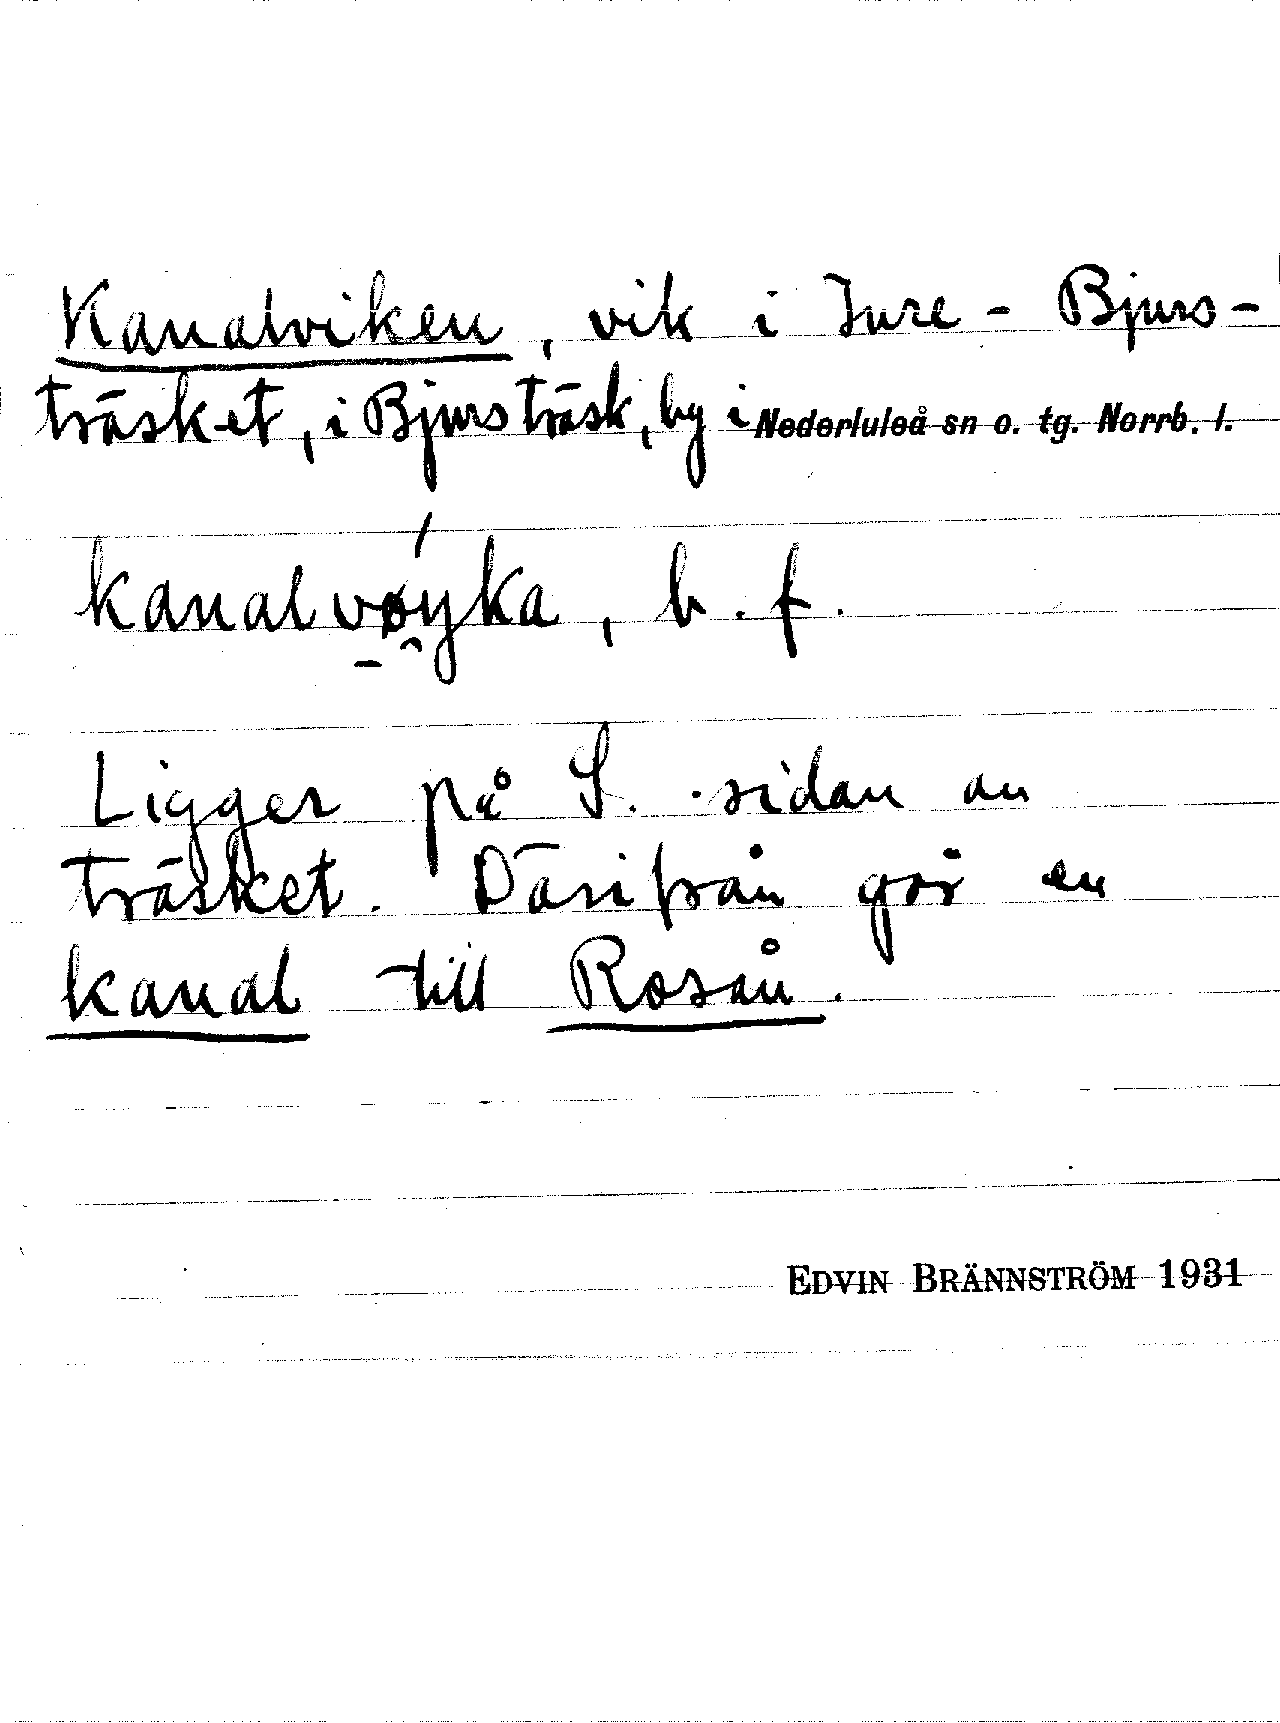 Kanalviken, vik i Inre-Bjurs-
träsket, i Bjursträsk, by i Nederluleå sn o. tg. Norrb. l.
kanalvøyka, b. f.
Ligger på S.-sidan av
träsket. Därifrån går en
kanal till Rosån.
EDVIN BRÄNNSTRÖM 1931